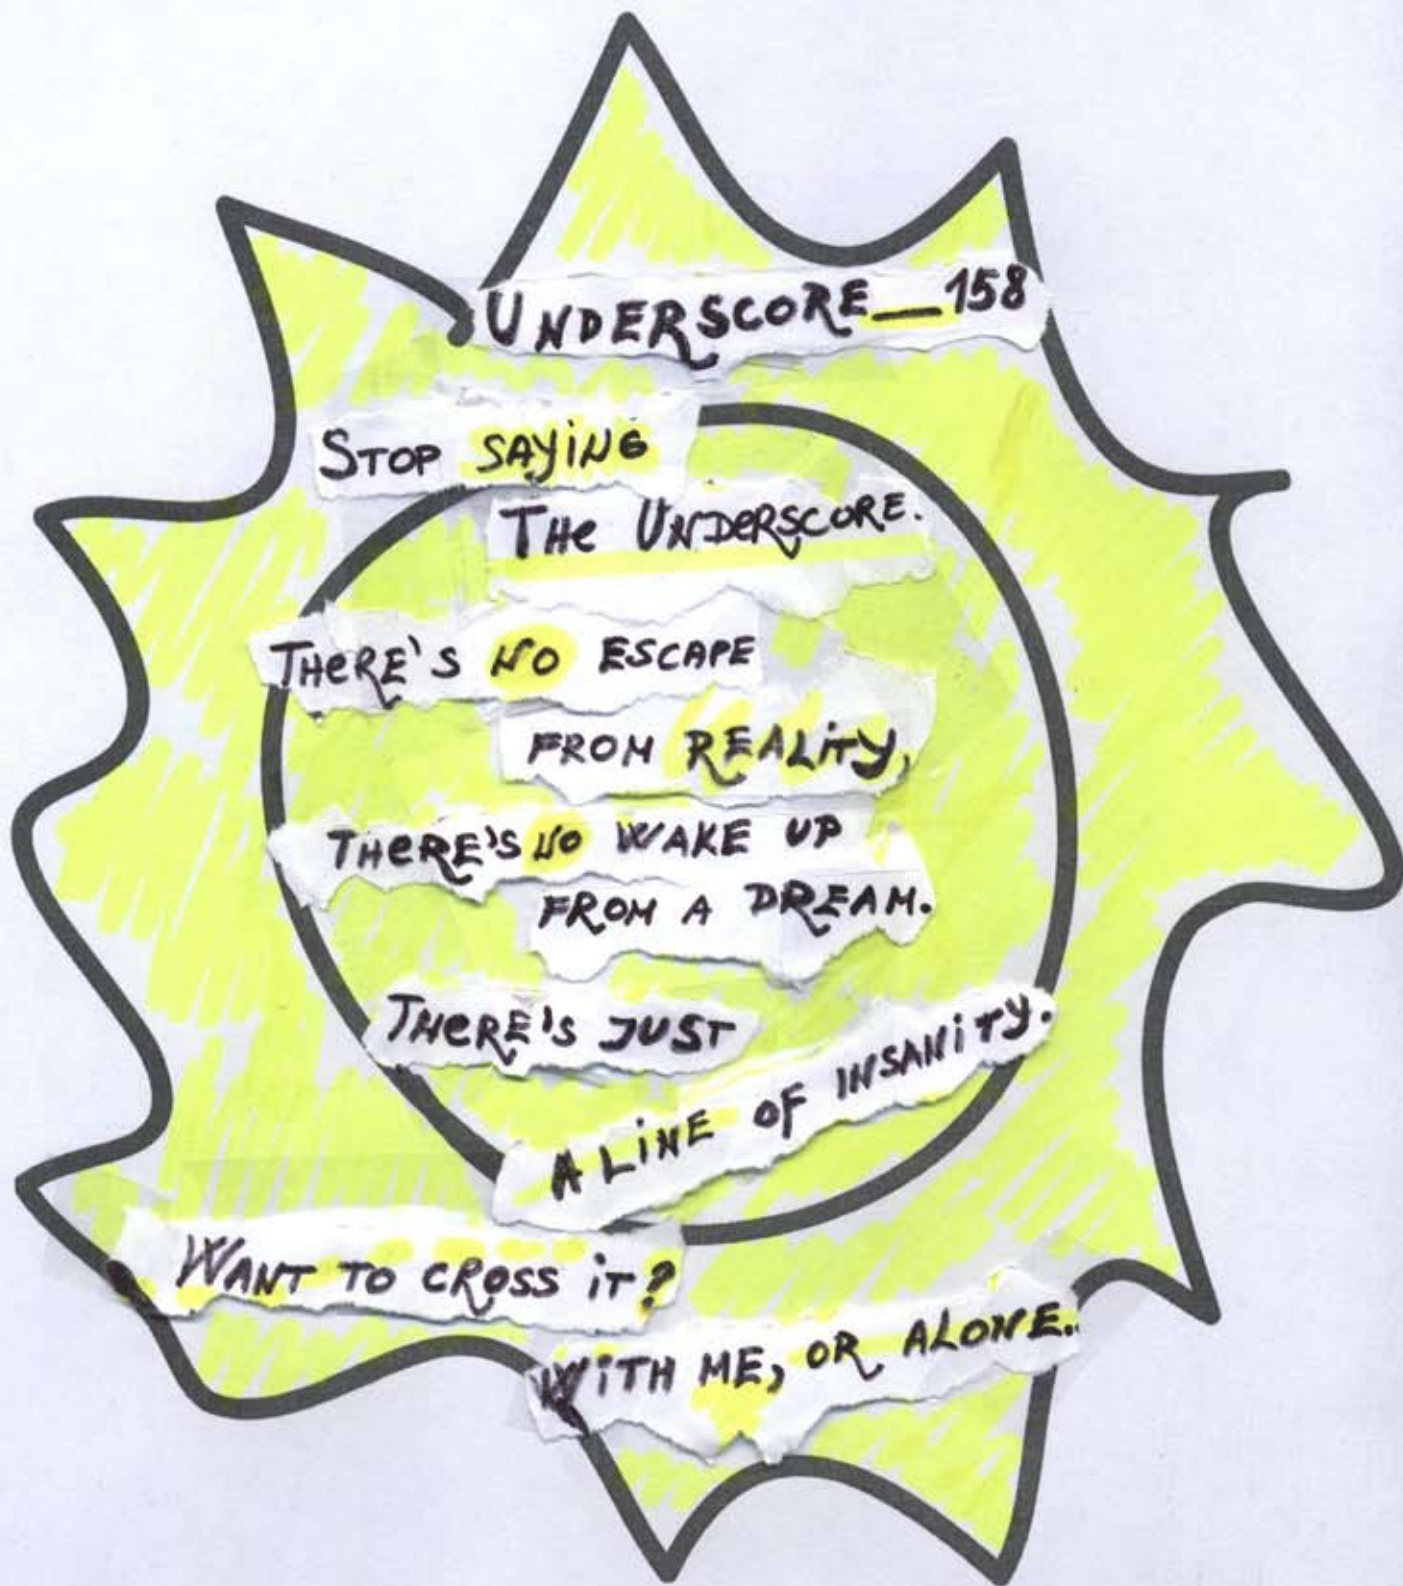 UNDERSCORE_158
STOP SAYiNG
THe UNDeRSCORE.
THeRE'S NO ESCAPE
FROM REALiTY,
THeRE'S NO WAKE UP
FROM A DREAM.
THeRE'S JUST
A LiNE OF INSANiTY.
WANT TO CROSS iT?
WiTH ME, OR ALONE..